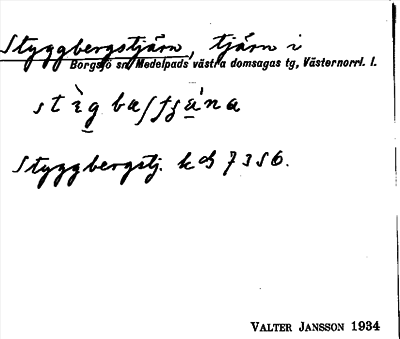 Styggbergstjärn, tjärn i
Borgsjö sn, Medelpads västra domsagas tg, Västernorrl. l.
Styggbergstj. k 7356.
VALTER JANSSON 1934